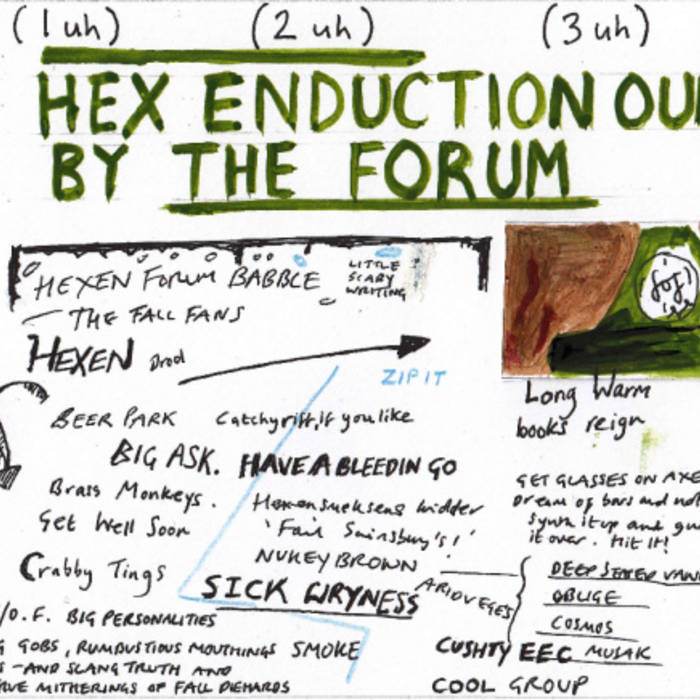 (1 uh) (2 uh) (3 uh)
HEX ENDUCTION OU
BY THE FORUM
HEXEN FORUM BABBLE
LITTLE
SCARY
WRITING
THE FALL FANS
HEXEN Drool
ZIP IT
Long Warm
books reign
BEER PARK Catchy riff, if you like
BIG ASK. HAVE A BLEEDIN GO
Brass Monkeys.
Get Well Soon
'Fair Sainsbury's!'
NUKEY BROWN
Crabby Tings
SICK WRYNESS
GET GLASSES ON AXE
Dream of bars and
synth it up and
it over. Hit It!
OBLIGE
COSMOS
/O.F. BIG PERSONALITIES
GOBS, RUMBUSTIOUS MOUTHINGS SMOKE
S - AND SLANG TRUTH AND
MITHERINGS OF FALL DIEHARDS
CUSHTY EEC MUSAK
COOL GROUP